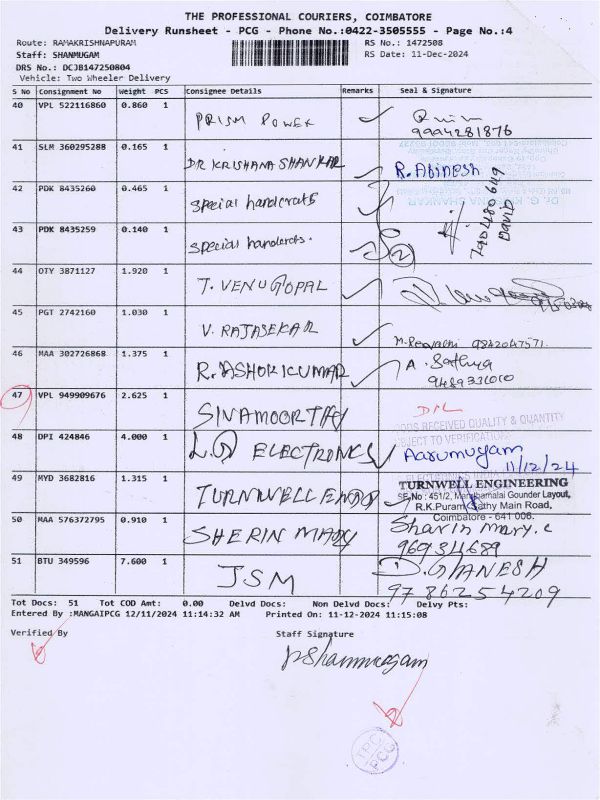 THE PROFESSIONAL COURIERS, COIMBATORE
Delivery Runsheet - PCG - Phone No.:0422-3505555 - Page No.:4
Route: RAMAKRISHNAPURAM RS No.: 1472508
Staff: SHANMUGAM RS Date: 11-Dec-2024
DRS No.: DCJB147250804
Vehicle: Two Wheeler Delivery
S No Consignment No Weight PCS Consignee Details Remarks Seal & Signature
40 VPL 522116860 0.860 1 PRISM POWER
9994281876
41 SLM 360295288 0.165 1 DR KRISHANA SHANKAR R. Abinesh
42 PDK 8435260 0.465 1 special handcrafts 7904180649 DAVID
43 PDK 8435259 0.140 1 special handcrafts. 2
44 OTY 3871127 1.920 1 T. VENUGOPAL
45 PGT 2742160 1.030 1 V. RAJASEKAR
9842047571
46 MAA 302726868 1.375 1 R. ASHOK KUMAR A. Sathya
47 VPL 949909676 2.625 1 SIVAMOORTHY
GOODS RECEIVED QUALITY & QUANTITY
SUBJECT TO VERIFICATION
48 DPI 424846 4.000 1 ELECTRONICS Aarumugam
11/12/24
49 MYD 3682816 1.315 1 TURNWELL ENGG TURNWELL ENGINEERING
SF.No : 451/2, Maruthamalai Gounder Layout,
R.K.Puram, Sathy Main Road,
Coimbatore - 641 006.
50 MAA 576372795 0.910 1 SHERIN MARY Sharin mary. c
51 BTU 349596 7.600 1 JSM D. GANESH
9786254209
Tot Docs: 51 Tot COD Amt: 0.00 Delvd Docs: Non Delvd Docs: Delvy Pts:
Entered By :MANGAIPCG 12/11/2024 11:14:32 AM Printed On: 11-12-2024 11:15:08
Verified By Staff Signature
P Shanmugam
TPC
PCG